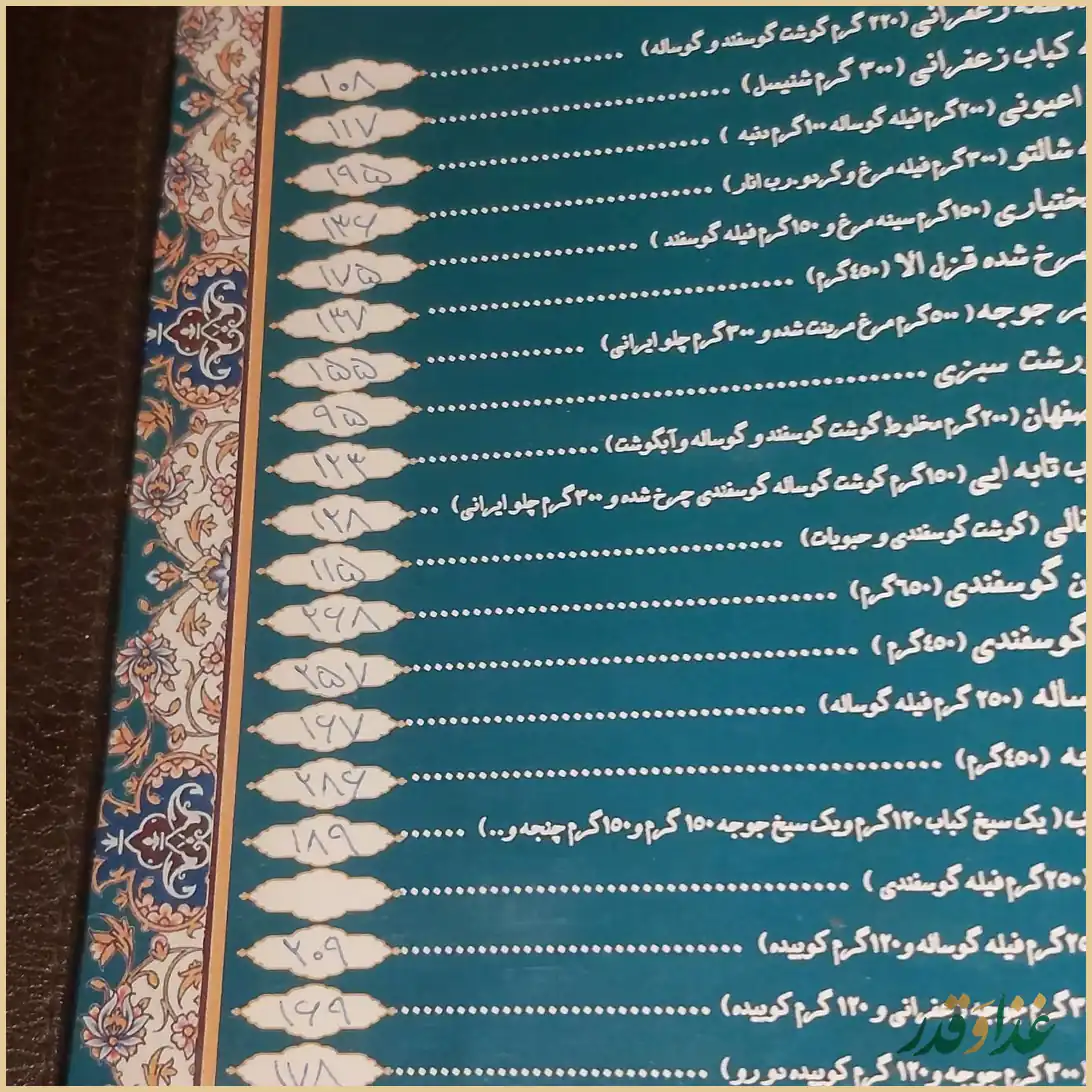 زعفرانی (۲۲۰ گرم گوشت گوسفند و گوساله) ۱۰۸
کباب زعفرانی (۳۰۰ گرم شنیسل) ۱۱۷
اعیونی (۲۰۰گرم فیله گوساله ۱۰۰گرم دنبه ) ۱۹۵
شالتو (۳۰۰گرم فیله مرغ و گردو،رب انار) ۱۳۶
ختیاری (۱۵۰گرم سینه مرغ و ۱۵۰گرم فیله گوسفند ) ۱۷۵
سرخ شده قزل الا (٤٥٠گرم) ۱۳۷
جوجه( ۵۰۰گرم مرغ مرینت شده و ۳۰۰گرم چلو ایرانی) ۱۵۵
سبزی ۹۵
(۲۰۰گرم مخلوط گوشت گوسفند و گوساله وآبگوشت) ۱۲۳
تابه ایی (۱۵۰گرم گوشت گوساله گوسفندی چرخ شده و ۳۰۰گرم چلو ایرانی) ۱۲۸
(گوشت گوسفندی و حبوبات) ۱۱۵
گوسفندی (٦٥٠گرم) ۲۶۸
گوسفندی (٤٥٠گرم ) ۲۵۷
(۲۵۰ گرم فیله گوساله) ۱۶۷
(٤٥٠گرم) ۲۸۶
( یک سیخ کباب ۱۲۰گرم ویک سیخ جوجه ۱۵۰ گرم و۱۵۰گرم چنجه و..) ۱۸۹
۲۵۰گرم فیله گوسفندی )
گرم فیله گوساله و ۱۲۰گرم کوبیده) ۲۰۹
گرم جوجه زعفرانی و ۱۲۰ گرم کوبیده) ۱۶۹
۳۰۰گرم جوجه و ۱۲۰ گرم کوبیده دو رو) ۱۷۸
غذا و قدر